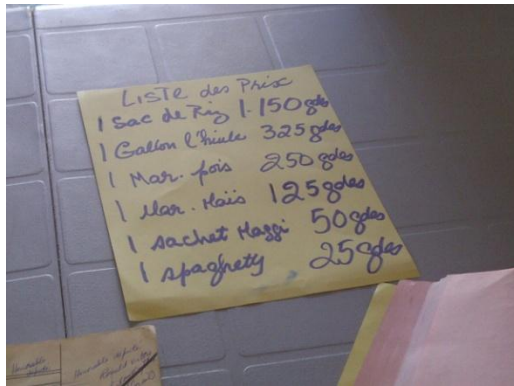 LISTE des Prix
1 Sac de Riz 1.150 gdes
1 Gallon l'huile 325 gdes
1 Mar. pois 250 gdes
1 Mar. Maïs 125 gdes
1 sachet Maggi 50 gdes
1 spaghetty 25 gdes